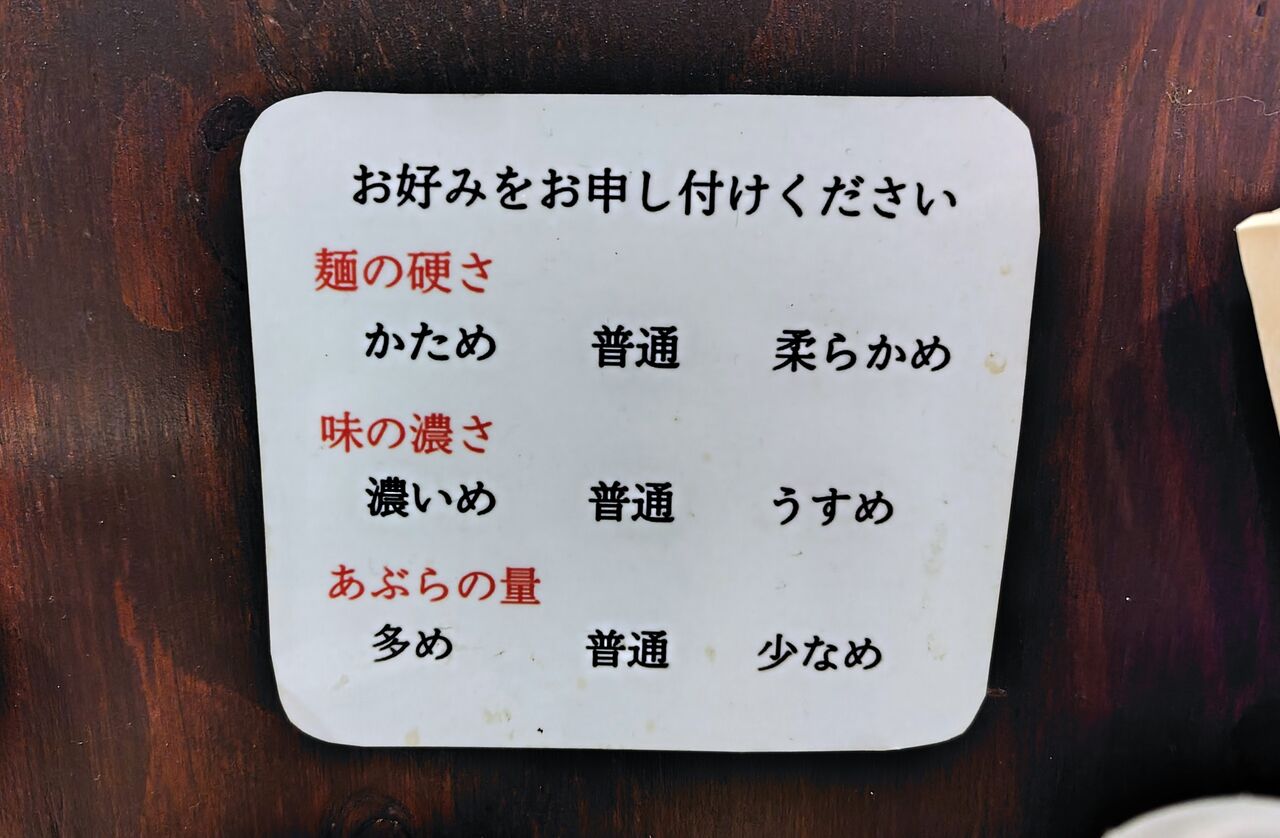 お好みをお申し付けください
麺の硬さ
かため 普通 柔らかめ
味の濃さ
濃いめ 普通 うすめ
あぶらの量
多め 普通 少なめ